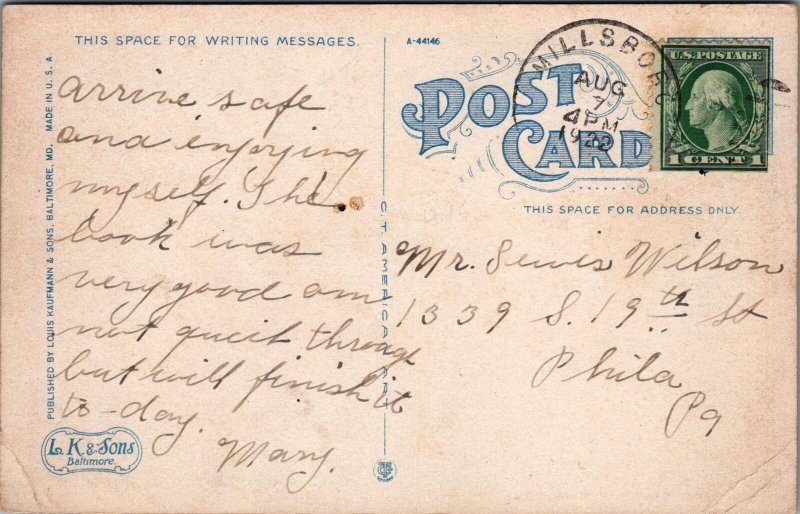 THIS SPACE FOR WRITING MESSAGES.
A-44146
MADE IN U. S. A.
PUBLISHED BY LOUIS KAUFMANN & SONS, BALTIMORE, MD.
arrive safe
and enjoying
myself. The
book was
very good am
not quiet through
but will finish it
to-day.
Mary.
L. K. & Sons
Baltimore.
C. T. AMERICAN ART
POST CARD
MILLSBORO
AUG
7
4 PM
1922
U.S. POSTAGE
1 CENT 1
THIS SPACE FOR ADDRESS ONLY.
Mr. Lewis Wilson
1339 S. 19th St
Phila
Pa